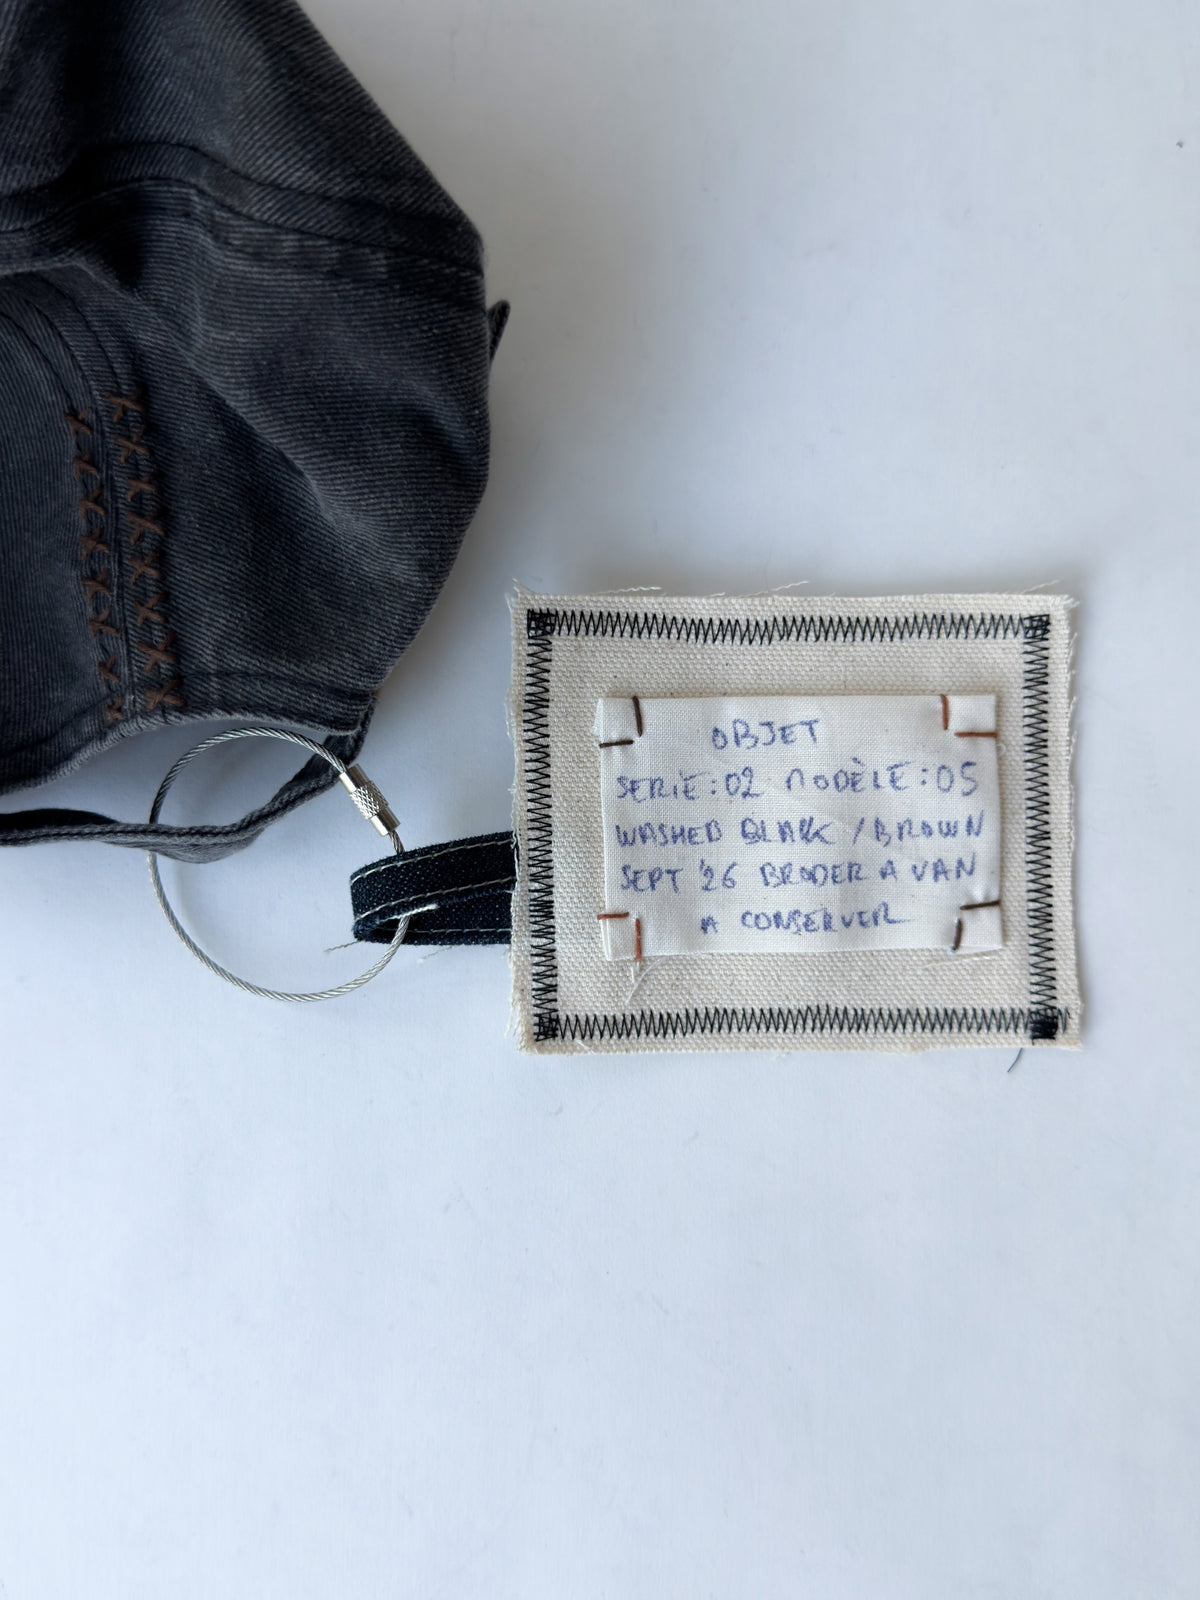 OBJET
SERIE:02 MODÈLE:05
WASHED BLACK / BROWN
SEPT '26 BRODER A VAN
A CONSERVER